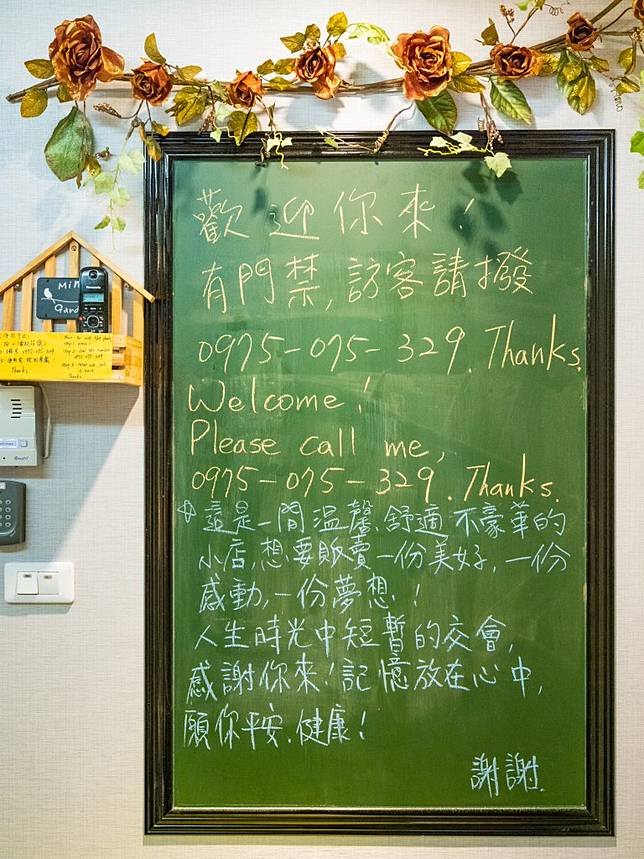 歡迎你來!
有門禁,訪客請撥
0975-075-329. Thanks.
Welcome!
Please call me,
0975-075-329. Thanks.
這是一間溫馨.舒適.不豪華的
小店,想要販賣一份美好,一份
感動,一份夢想.!
人生時光中短暫的交會,
感謝你來!記憶放在心中,
願你平安.健康!
謝謝.